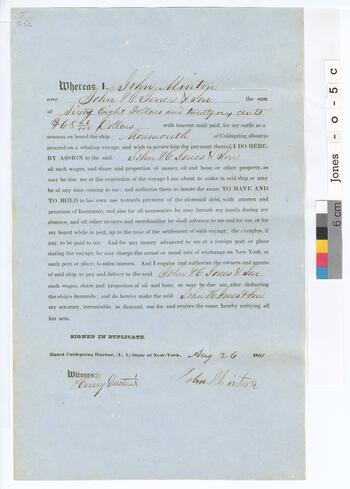 Whereas I, John Minton
owe John H Jones & Son the sum
of Sixty Eight Dollars and twenty cents
$68 20/100 Dollars, with interest until paid, for my outfit as a
seaman on board the ship Monmouth of Coldspring, about to
proceed on a whaling voyage; and wish to secure him the payment thereof, I DO HERE-
BY ASSIGN to the said John H Jones & Son
all such wages, and share and proportion of money, oil and bone, or other property, as
may be due me at the expiration of the voyage I am about to make in said ship or may
be at any time coming to me; and authorise them to insure the same, TO HAVE AND
TO HOLD to his own use towards payment of the aforesaid debt, with interest and
premium of Insurance, and also for all necessaries he may furnish my family during my
absence, and all other moneys and merchandise he shall advance to me and for me, or for
my board while in port, up to the time of the settlement of such voyage; the overplus, if
any, to be paid to me. And for any money advanced to me at a foreign port or place
during the voyage, he may charge the actual or usual rate of exchange on New York, at
such port or place, besides interest. And I require and authorize the owners and agents
of said ship, to pay and deliver to the said John H Jones & Son
such wages, share and proportion of oil and bone, as may be due me, after deducting
the ship's demands; and do hereby make the said John H Jones & Son
my attorney, irrevocable, to demand, sue for and receive the same, hereby ratifying all
his acts.
SIGNED IN DUPLICATE.
Dated Coldspring Harbor, (L. I.) State of New-York, Aug 26 185
Witness: 
Henry John Minton
Jones - o - 5 c
6 cm